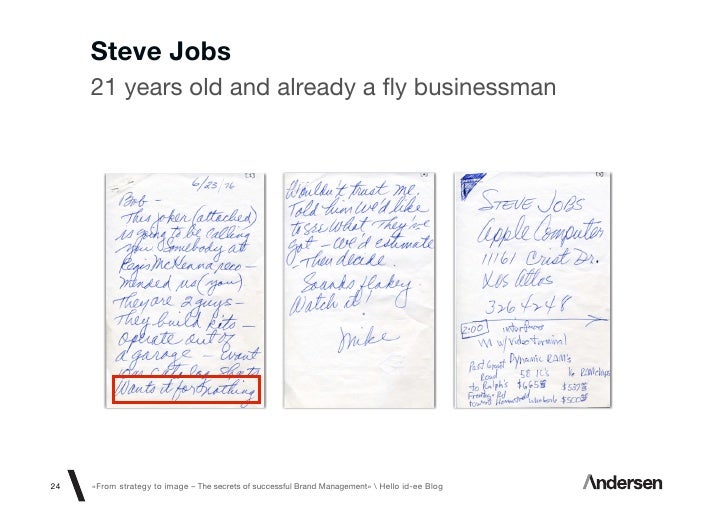 Steve Jobs
21 years old and already a fly businessman
6/23/76
Bob –
This joker (attached)
is going to be calling
you. Somebody at
Regis McKenna reco–
mended us (you)
They are 2 guys –
They build kits –
operate out of
a garage – want
our catalog sheets
Wants it for nothing
Wouldn't trust me.
Told him we'd like
to see what they've
got – we'd estimate
– then decide.
Sounds flakey.
Watch it!
Mike
STEVE JOBS
Apple Computer
11161 Crist Dr.
Los Altos
326 4248
2:00 interface
w/ video terminal
Dynamic RAMs
Past Grant
Road 58 IC's 16 RAM chips
to Ralph's $666 $537
Frontage Rd
toward Homestead wholesale $500
24
«From strategy to image – The secrets of successful Brand Management» \ Hello id-ee Blog
Andersen